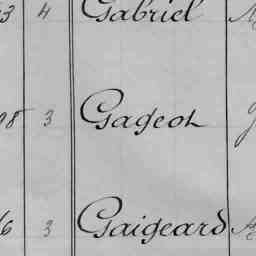 3 4 Gabriel
98 3 Gageot
6 3 Gaigeard